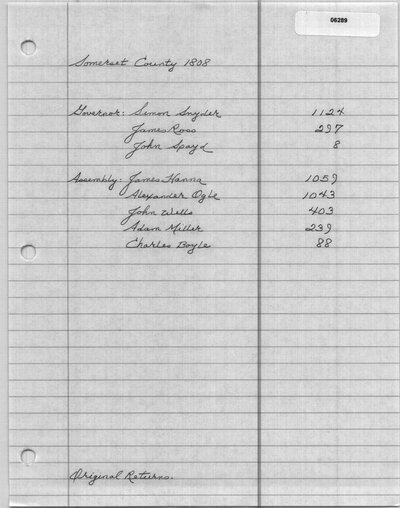 06289
Somerset County 1808
Governor: Simon Snyder 1124
James Ross 297
John Spayd 8
Assembly: James Hanna 1059
Alexander Ogle 1043
John Wells 403
Adam Miller 239
Charles Boyle 88
Original Returns.